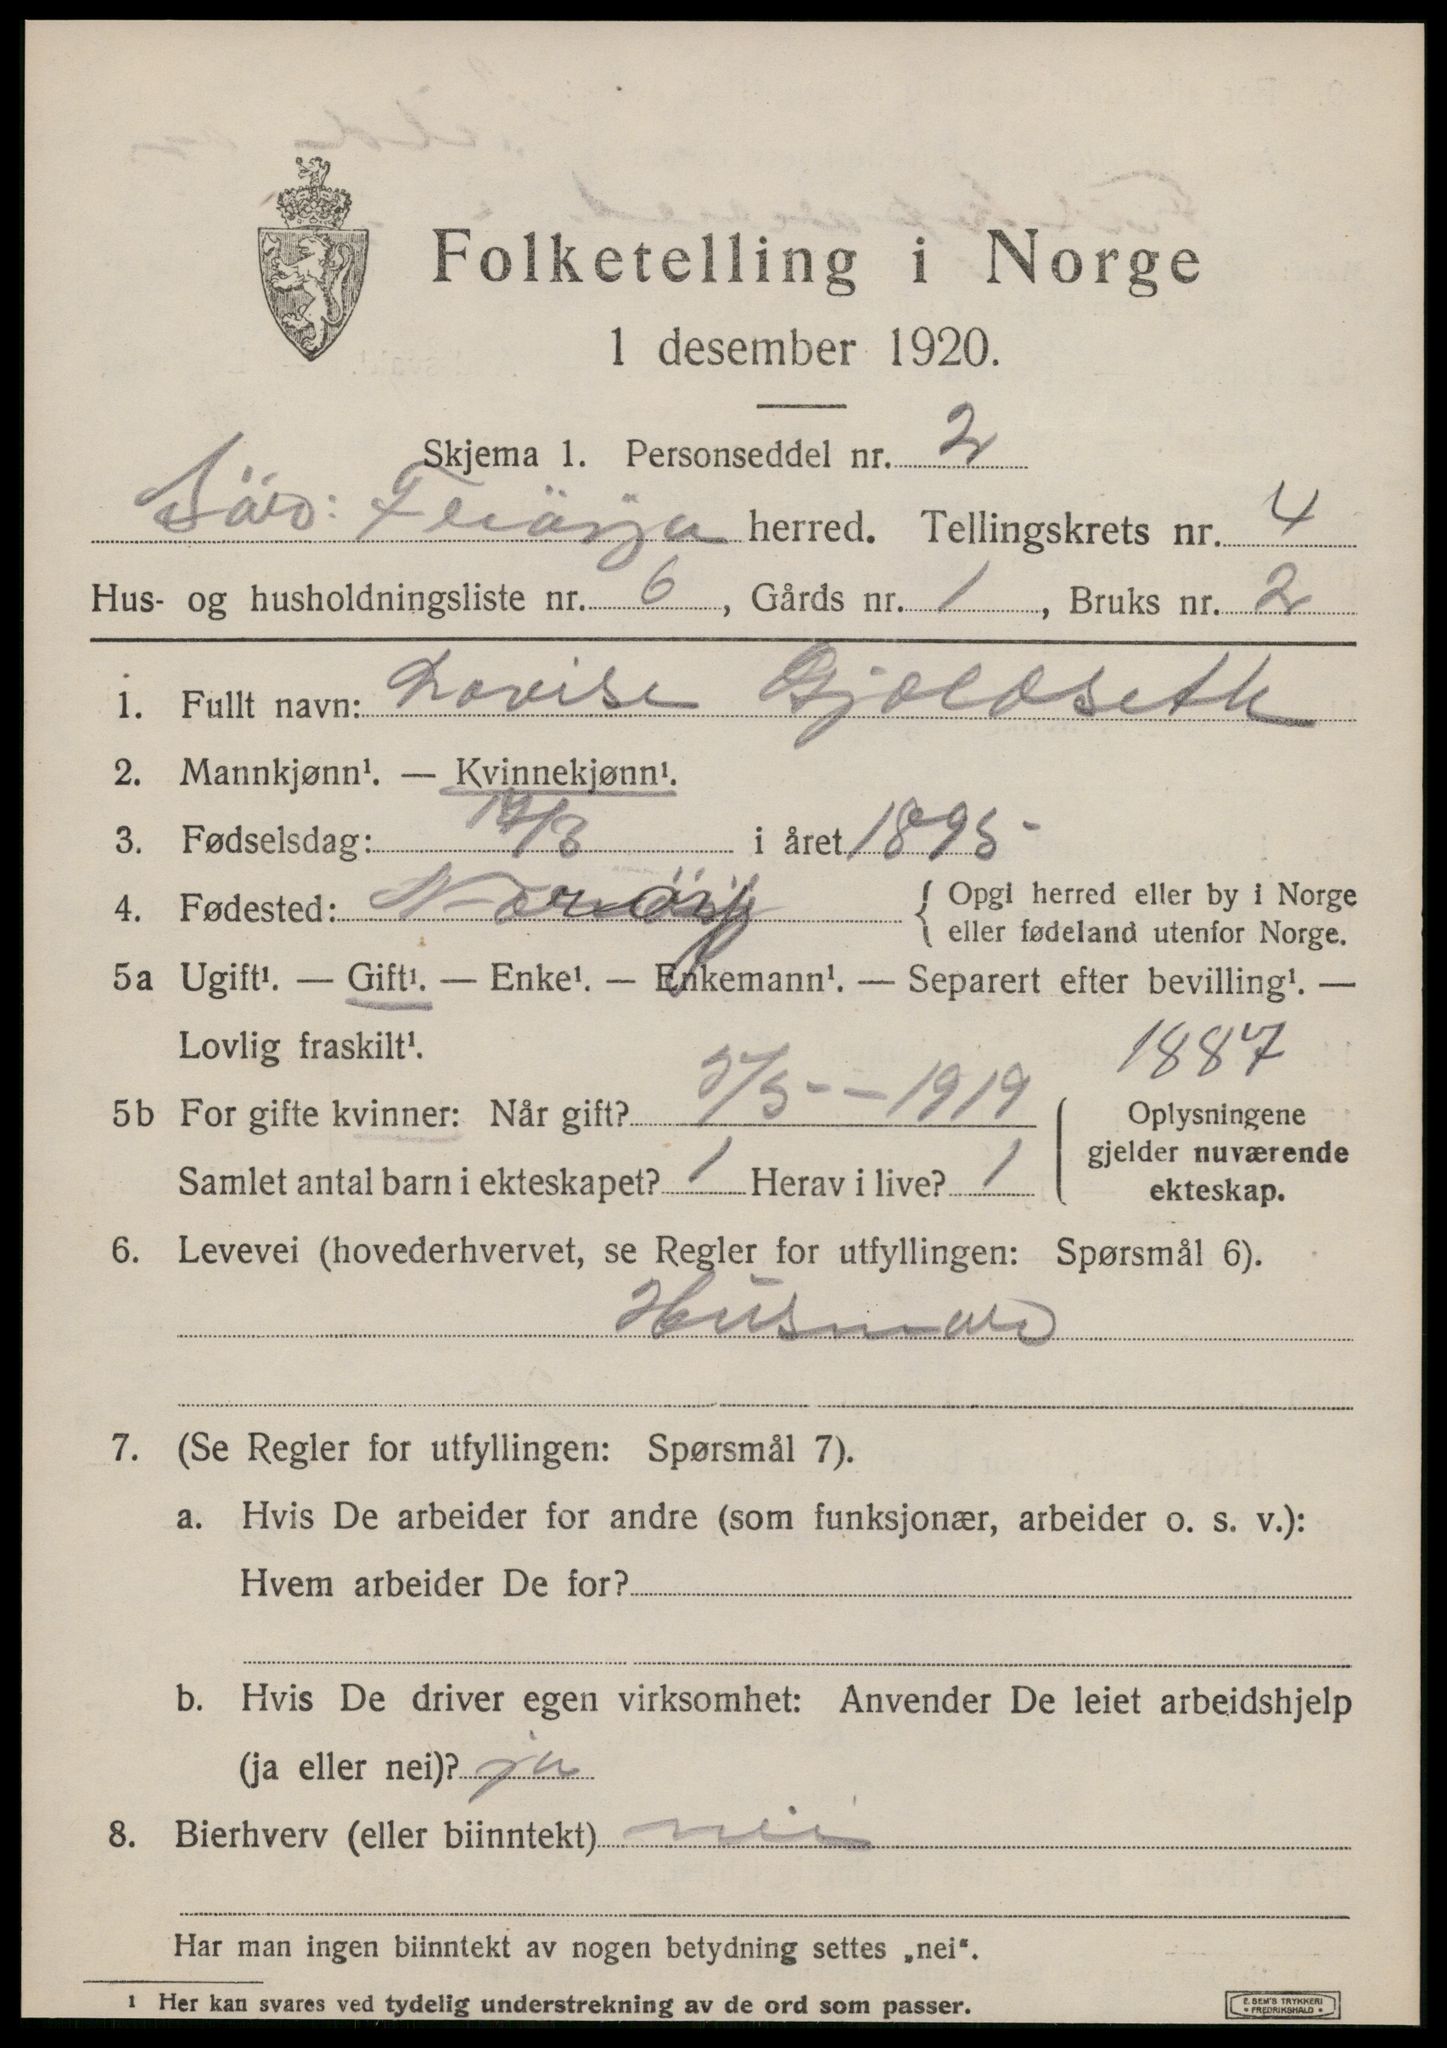 Folketelling i Norge
1 desember 1920.
Skjema 1. Personseddel nr. 2
herred. Tellingskrets nr. 4
Hus- og husholdningsliste nr. 6, Gårds nr. 1, Bruks nr. 2
1. Fullt navn: Lovise Gjeldseth
2. Mannkjønn¹. — Kvinnekjønn¹.
3. Fødselsdag: i året 1895
4. Fødested: { Opgi herred eller by i Norge
eller fødeland utenfor Norge.
5a Ugift¹. — Gift¹. — Enke¹. — Enkemann¹. — Separert efter bevilling¹. —
Lovlig fraskilt¹. 1887
5b For gifte kvinner: Når gift? 1919
Samlet antal barn i ekteskapet? 1 Herav i live? 1
{ Oplysningene
gjelder nuværende
ekteskap.
6. Levevei (hovederhvervet, se Regler for utfyllingen: Spørsmål 6).
7. (Se Regler for utfyllingen: Spørsmål 7).
a. Hvis De arbeider for andre (som funksjonær, arbeider o. s. v.):
Hvem arbeider De for?
b. Hvis De driver egen virksomhet: Anvender De leiet arbeidshjelp
(ja eller nei)? ja
8. Bierhverv (eller biinntekt) nei
Har man ingen biinntekt av nogen betydning settes „nei“.
¹ Her kan svares ved tydelig understrekning av de ord som passer.
E. SEM'S TRYKKERI
• FREDRIKSHALD •